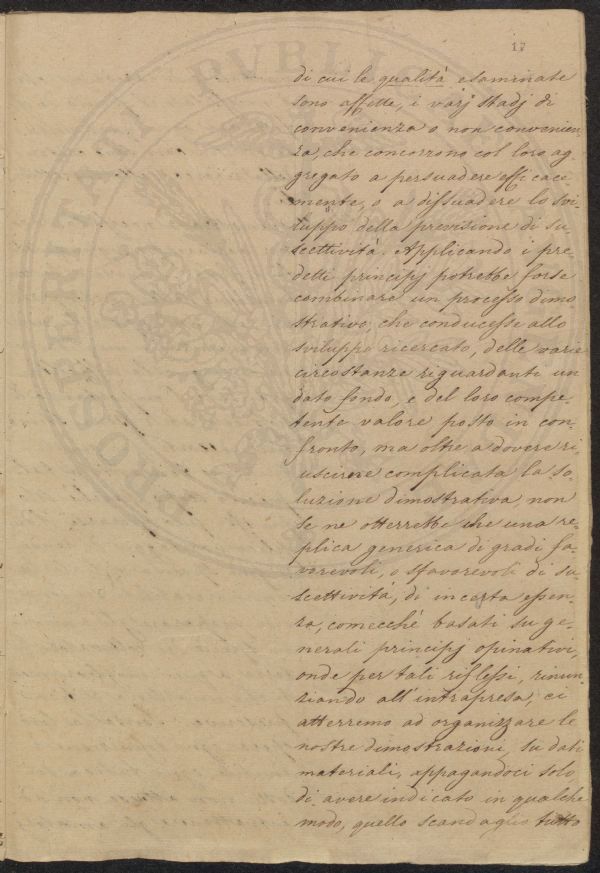 17
di cui le qualità esaminate
sono affette, i varj stadj di
convenienza o non convenien=
za, che concorrono col loro ag=
gregato a persuadere efficace=
mente, o a dissuadere lo svi=
luppo della previsione di su=
scettività. Applicando i pre=
detti principj potrebbe forse
combinare un processo dimo
strativo, che conducesse allo
sviluppo ricercato, delle varie
circostanze riguardanti un
dato fondo, e del loro compe=
tente valore posto in con=
fronto, ma oltre a dovere ri=
uscirne complicata la so=
luzione dimostrativa, non
se ne otterrebbe che una re=
plica generica di gradi fa=
vorevoli, o sfavorevoli di su=
scettività, di incerta essen=
za, comecchè basati su ge=
nerali principj opinativi,
onde per tali riflessi, rinun=
ziando all'intrapresa, ci
atterremo ad organizzare le
nostre dimostrazioni, su dati
materiali, appagandoci solo
di avere indicato in qualche
modo, quello scandaglio tutto